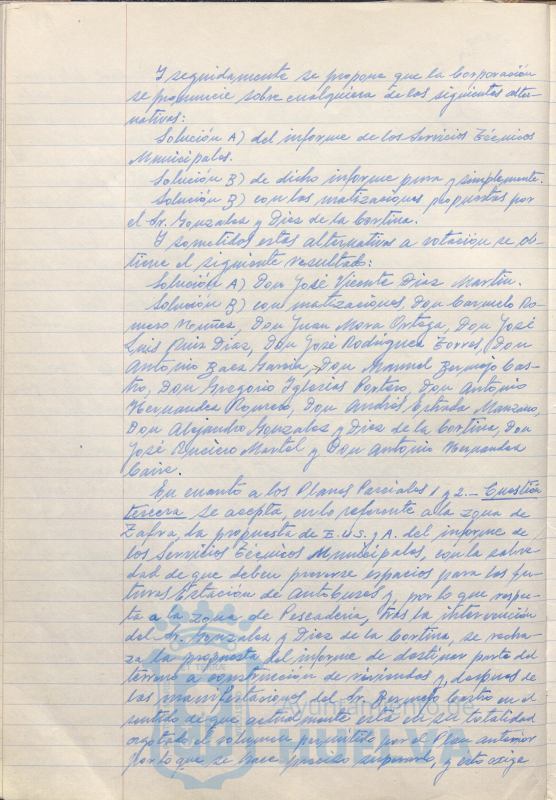 Y seguidamente se propone que la Corporación
se pronuncie sobre cualquiera de las siguientes alter-
nativas:
Solución A) del informe de los Servicios Técnicos
Municipales.
Solución B) de dicho informe pura y simplemente.
Solución B) con las matizaciones propuestas por
el Sr. Gonzalez y Diez de la Cortina.
Y sometidas estas alternativas a votación se ob-
tiene el siguiente resultado:
Solución A) Don José Vicente Diaz Martin.
Solución B) con matizaciones, Don Carmelo Ro-
mero Nuñez, Don Juan Mora Ortega, Don José
Luis Ruiz Diaz, Don José Rodriguez Torres, Don
Antonio Baez Garcia, Don Manuel Bermejo Cas-
tro, Don Gregorio Iglesias Portero, Don Antonio
Hernandez Romero, Don Andrés Estrada Manzano,
Don Alejandro Gonzalez y Diez de la Cortina, Don
José Martel y Don Antonio Hernandez
En cuanto a los Planes Parciales 1 y 2.- Cuestión
tercera se acepta, en lo referente a la zona de
Zafra, la propuesta de E.U.S. y A. del informe de
los Servicios Técnicos Municipales, con la salve-
dad de que deben preverse espacios para las fu-
turas Estación de Autobuses y, por lo que respec-
ta a la zona de Pescadería, tras la intervención
del Sr. Gonzalez y Diez de la Cortina, se recha-
za la propuesta del informe de destinar parte del
terreno a construcción de viviendas y, despues de
las manifestaciones del Sr. Bermejo Castro en el
sentido de que actualmente está en su totalidad
agotado el volumen permitido por el Plan anterior
por lo que se hace preciso y esto exige
Ayuntamiento de
HUELVA